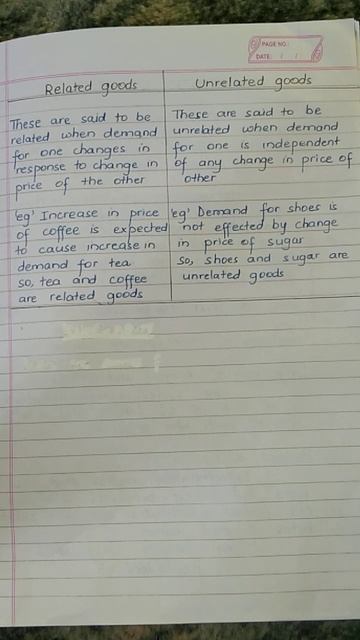 PAGE NO.:
DATE: / /
Related goods
Unrelated goods
These are said to be
related when demand
for one changes in
response to change in
price of the other
These are said to be
unrelated when demand
for one is independent
of any change in price of
other
'eg' Increase in price
of coffee is expected
to cause increase in
demand for tea
so, tea and coffee
are related goods
'eg' Demand for shoes is
not effected by change
in price of sugar
So, shoes and sugar are
unrelated goods